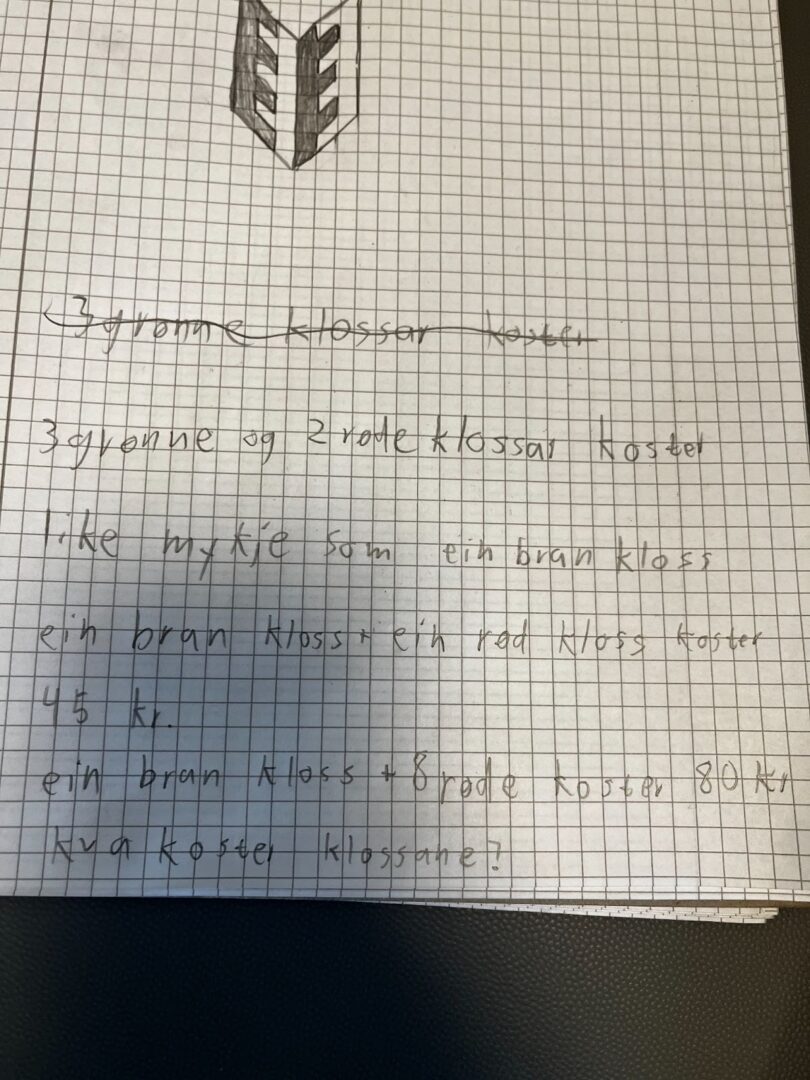 3 grønne klossar koster
3 grønne og 2 røde klossar koster
like mykje som ein brun kloss
ein brun kloss + ein rød kloss koster
45 kr.
ein brun kloss + 8 røde koster 80 kr
kva koster klossane?